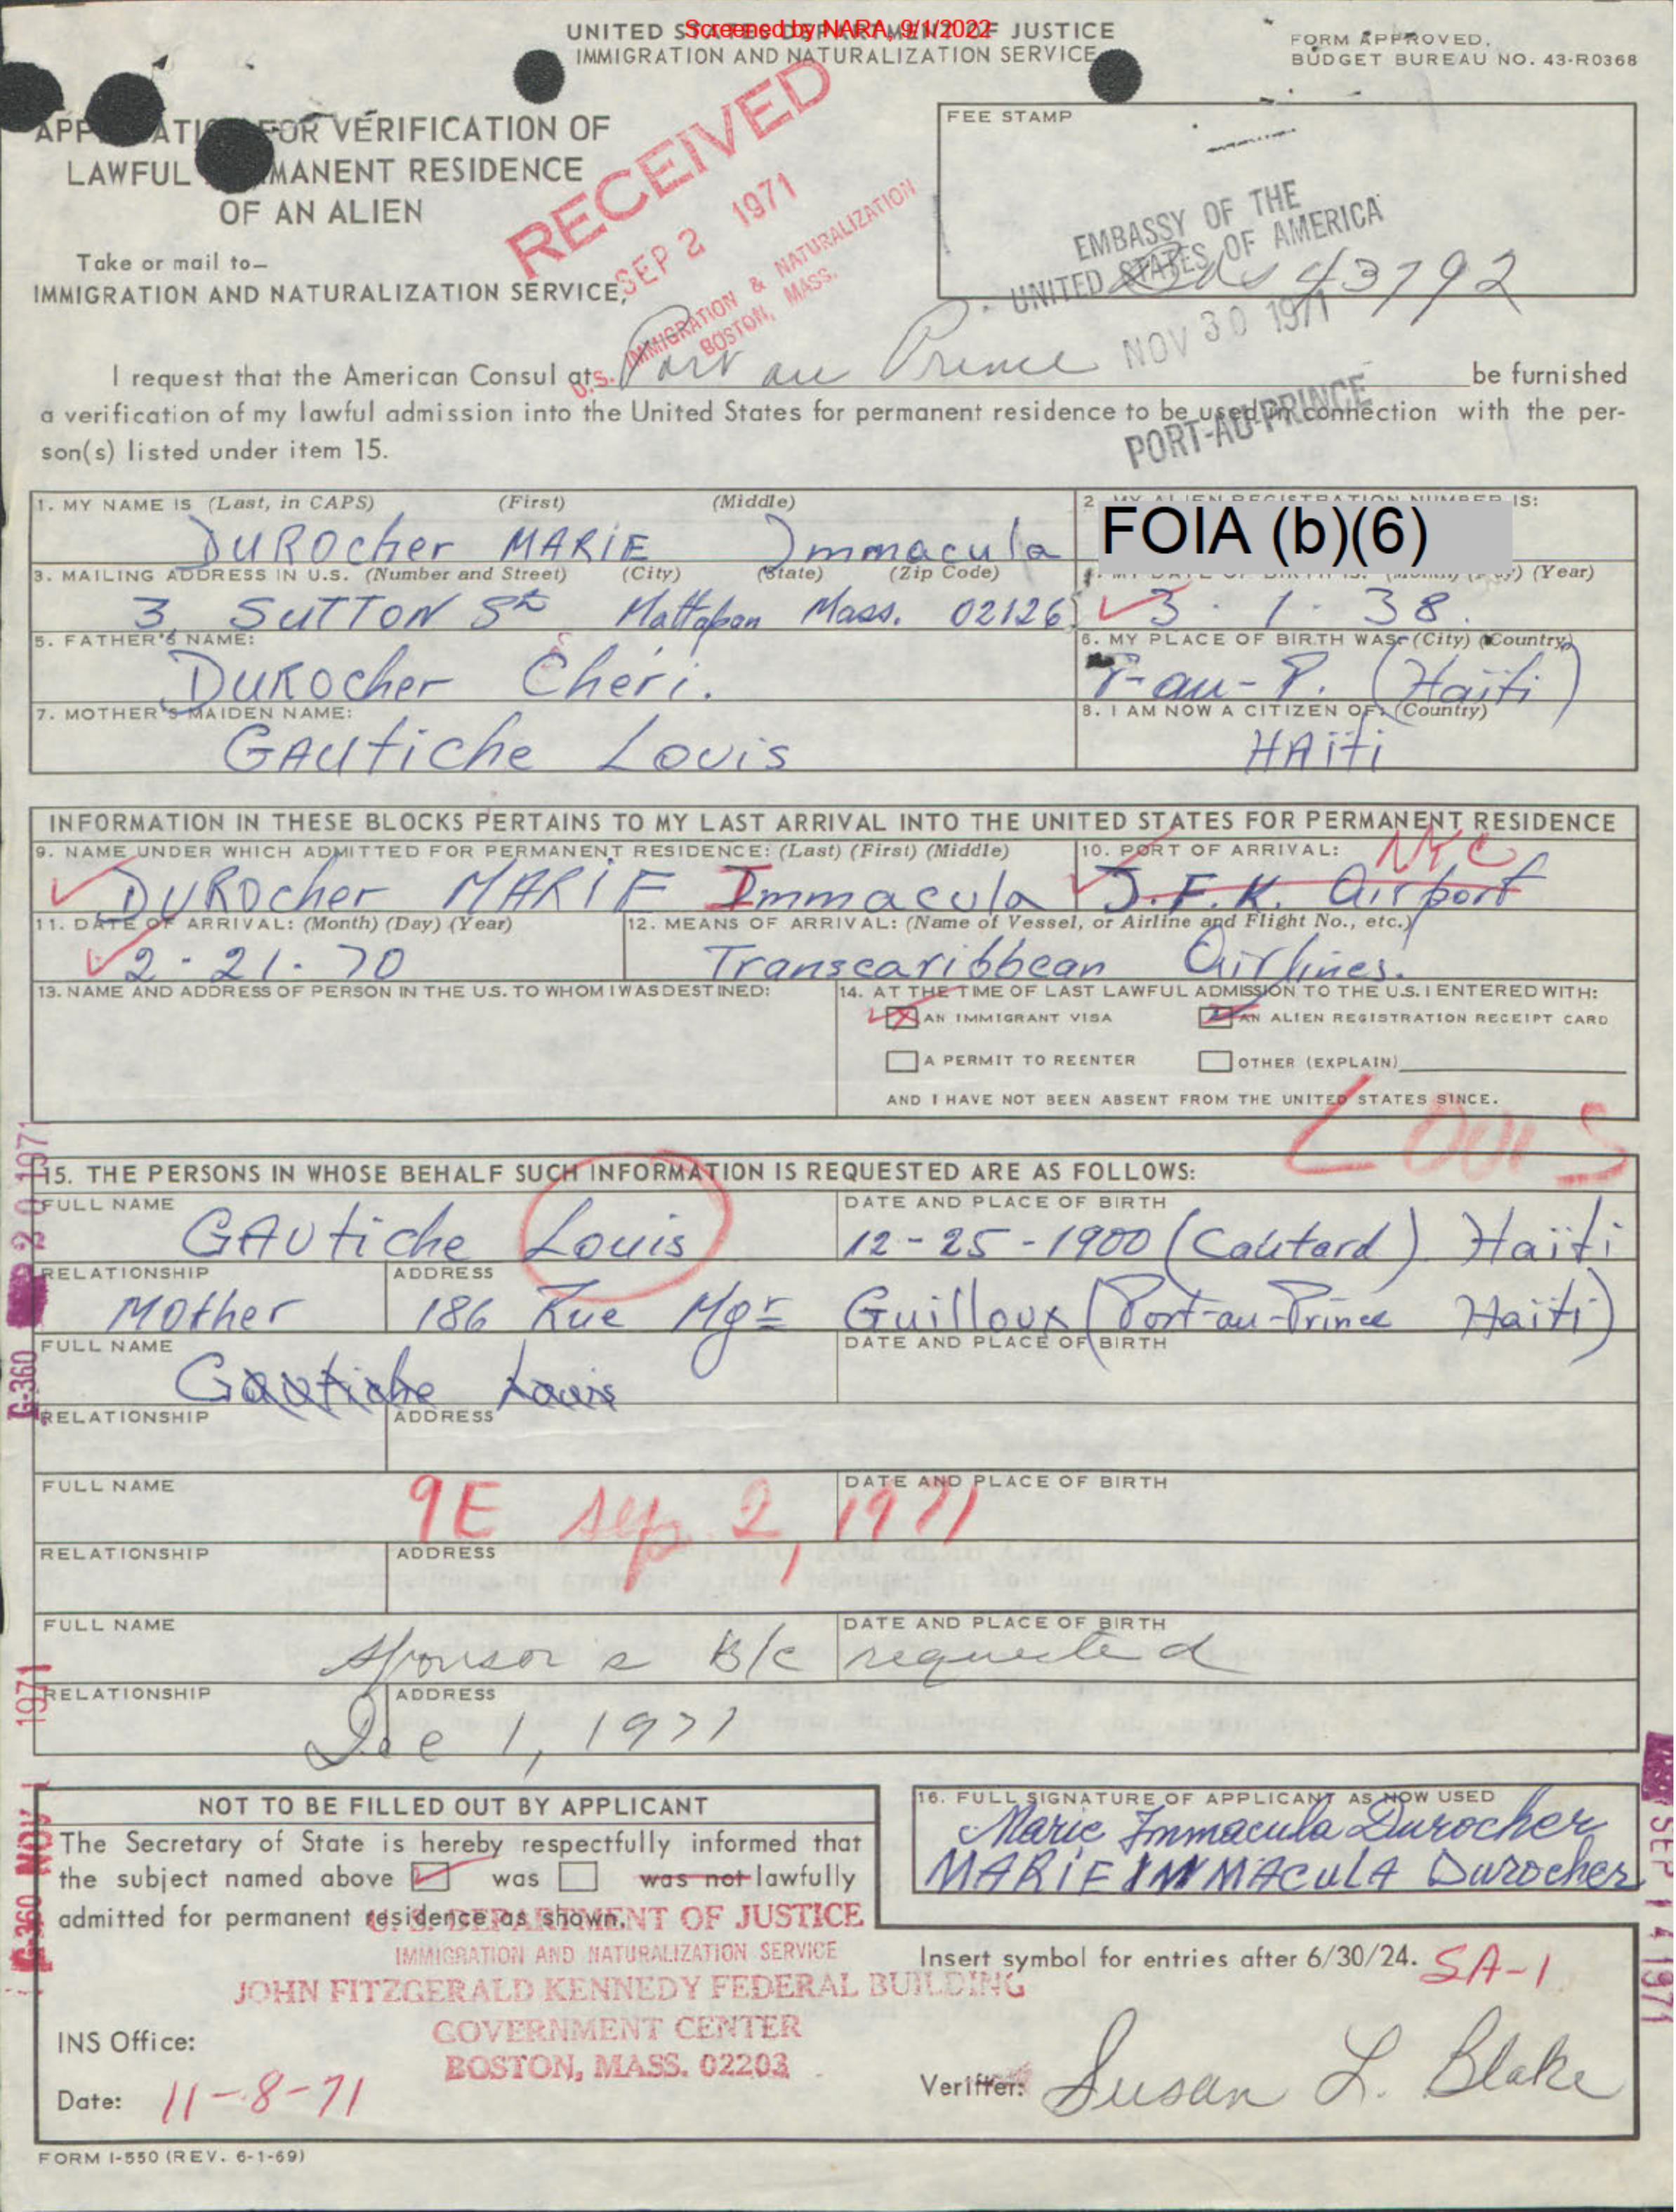 Screened by NARA, 9/1/2022
UNITED STATES DEPARTMENT OF JUSTICE
IMMIGRATION AND NATURALIZATION SERVICE
FORM APPROVED.
BUDGET BUREAU NO. 43-R0368
FOR VERIFICATION OF
LAWFUL MANENT RESIDENCE
OF AN ALIEN
Take or mail to—
IMMIGRATION AND NATURALIZATION SERVICE,
RECEIVED
SEP 2 1971
U.S. IMMIGRATION & NATURALIZATION
BOSTON, MASS.
FEE STAMP
EMBASSY OF THE
UNITED STATES OF AMERICA
43792
NOV 30 1971
PORT-AU-PRINCE
I request that the American Consul at Port au Prince be furnished
a verification of my lawful admission into the United States for permanent residence to be used in connection with the per-
son(s) listed under item 15.
1. MY NAME IS (Last, in CAPS) (First) (Middle)
DUROcher MARiE Immacula
2. MY ALIEN REGISTRATION NUMBER IS:
FOIA (b)(6)
3. MAILING ADDRESS IN U.S. (Number and Street) (City) (State) (Zip Code)
3, SUTTON St Mattapan Mass. 02126
4. MY DATE OF BIRTH IS: (Month) (Day) (Year)
3. 1. 38.
5. FATHER'S NAME:
DUROcher Cheri.
6. MY PLACE OF BIRTH WAS: (City) (Country)
P-au-P. (Haïti)
7. MOTHER'S MAIDEN NAME:
GAUtiche Louis
8. I AM NOW A CITIZEN OF: (Country)
HAïti
INFORMATION IN THESE BLOCKS PERTAINS TO MY LAST ARRIVAL INTO THE UNITED STATES FOR PERMANENT RESIDENCE
9. NAME UNDER WHICH ADMITTED FOR PERMANENT RESIDENCE: (Last) (First) (Middle)
DUROcher MARiE Immacula
10. PORT OF ARRIVAL: NYC
J.F.K. Airport
11. DATE OF ARRIVAL: (Month) (Day) (Year)
2-21-70
12. MEANS OF ARRIVAL: (Name of Vessel, or Airline and Flight No., etc.)
Transcaribbean Airlines.
13. NAME AND ADDRESS OF PERSON IN THE U.S. TO WHOM I WAS DESTINED:
14. AT THE TIME OF LAST LAWFUL ADMISSION TO THE U.S. I ENTERED WITH:
AN IMMIGRANT VISA AN ALIEN REGISTRATION RECEIPT CARD
A PERMIT TO REENTER OTHER (EXPLAIN)
AND I HAVE NOT BEEN ABSENT FROM THE UNITED STATES SINCE.
LOUIS
15. THE PERSONS IN WHOSE BEHALF SUCH INFORMATION IS REQUESTED ARE AS FOLLOWS:
FULL NAME DATE AND PLACE OF BIRTH
GAUtiche Louis 12-25-1900 (Cabitard) Haïti
RELATIONSHIP ADDRESS
Mother 186 Rue Mgr Guilloux (Port-au-Prince Haïti)
FULL NAME DATE AND PLACE OF BIRTH
Gautiche Louis
RELATIONSHIP ADDRESS
FULL NAME DATE AND PLACE OF BIRTH
9E Sep. 2, 1971
RELATIONSHIP ADDRESS
FULL NAME DATE AND PLACE OF BIRTH
Sponsor's B/c requested
RELATIONSHIP ADDRESS
Dec 1, 1971
G-360
1971
G-360 NOV
SEP 14 1971
NOT TO BE FILLED OUT BY APPLICANT
The Secretary of State is hereby respectfully informed that
the subject named above was was not lawfully
admitted for permanent residence as shown.
U. S. DEPARTMENT OF JUSTICE
IMMIGRATION AND NATURALIZATION SERVICE
JOHN FITZGERALD KENNEDY FEDERAL BUILDING
GOVERNMENT CENTER
BOSTON, MASS. 02203
16. FULL SIGNATURE OF APPLICANT AS NOW USED
Marie Immacula Durocher
MARiE IMMACULA Durocher
Insert symbol for entries after 6/30/24. SA-1
INS Office:
Date: 11-8-71
Verifier: Susan L. Blake
FORM I-550 (REV. 6-1-69)